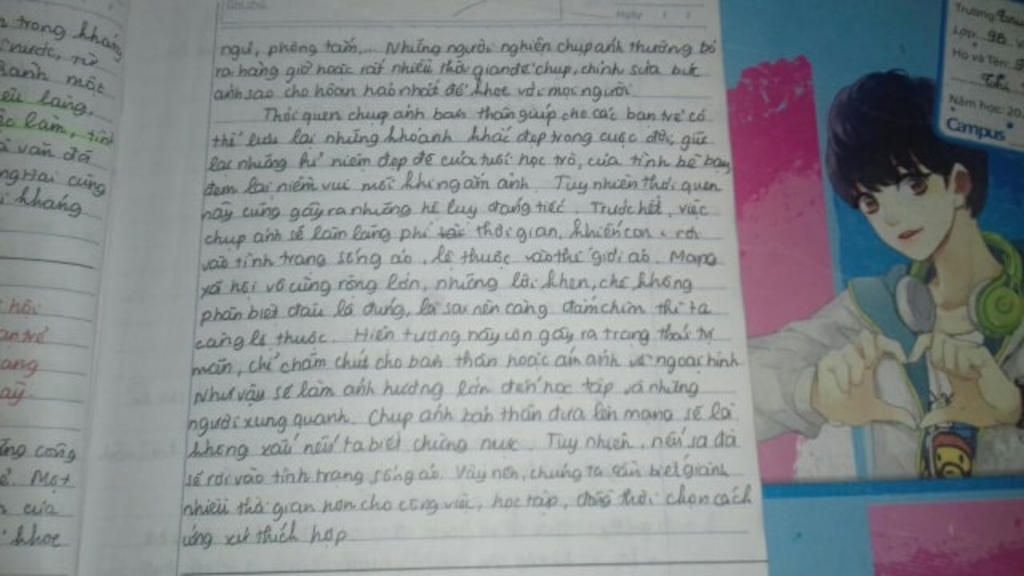 Ngày / /
ngủ, phòng tắm,... Những người nghiện chụp ảnh thường bỏ
ra hàng giờ hoặc rất nhiều thời gian để chụp, chỉnh sửa bức
ảnh sao cho hoàn hảo nhất để khoe với mọi người.
Thói quen chụp ảnh bản thân giúp cho các bạn trẻ có
thể lưu lại những khoảnh khắc đẹp trong cuộc đời, giữ
lại những kỉ niệm đẹp đẽ của tuổi học trò, của tình bè bạn
đem lại niềm vui mỗi khi ngắm ảnh. Tuy nhiên thói quen
này cũng gây ra những hệ lụy đáng tiếc. Trước hết, việc
chụp ảnh sẽ làm lãng phí thời gian, khiến con rơi
vào tình trạng sống ảo, lệ thuộc vào thế giới ảo. Mạng
xã hội vô cùng rộng lớn, những lời khen, chê không
phân biệt đâu là đúng, là sai nên càng đắm chìm thì ta
càng lệ thuộc. Hiện tượng này còn gây ra trạng thái tự
mãn, chỉ chăm chút cho bản thân hoặc ám ảnh về ngoại hình
Như vậy sẽ làm ảnh hưởng lớn đến học tập và những
người xung quanh. Chụp ảnh bản thân đưa lên mạng sẽ là
không xấu nếu ta biết chừng mực. Tuy nhiên, nếu sa đà
sẽ rơi vào tình trạng sống ảo. Vậy nên, chúng ta cần biết giành
nhiều thời gian hơn cho công việc, học tập, đồng thời chọn cách
ứng xử thích hợp
trong kháng
nước, từ
một
làng,
làm, tình
vẫn đã
Hai cũng
kháng
hội
trẻ
công
Một
của
khoe
Trường
Lớp: 9B
Họ và Tên:
Năm học: 20
Campus